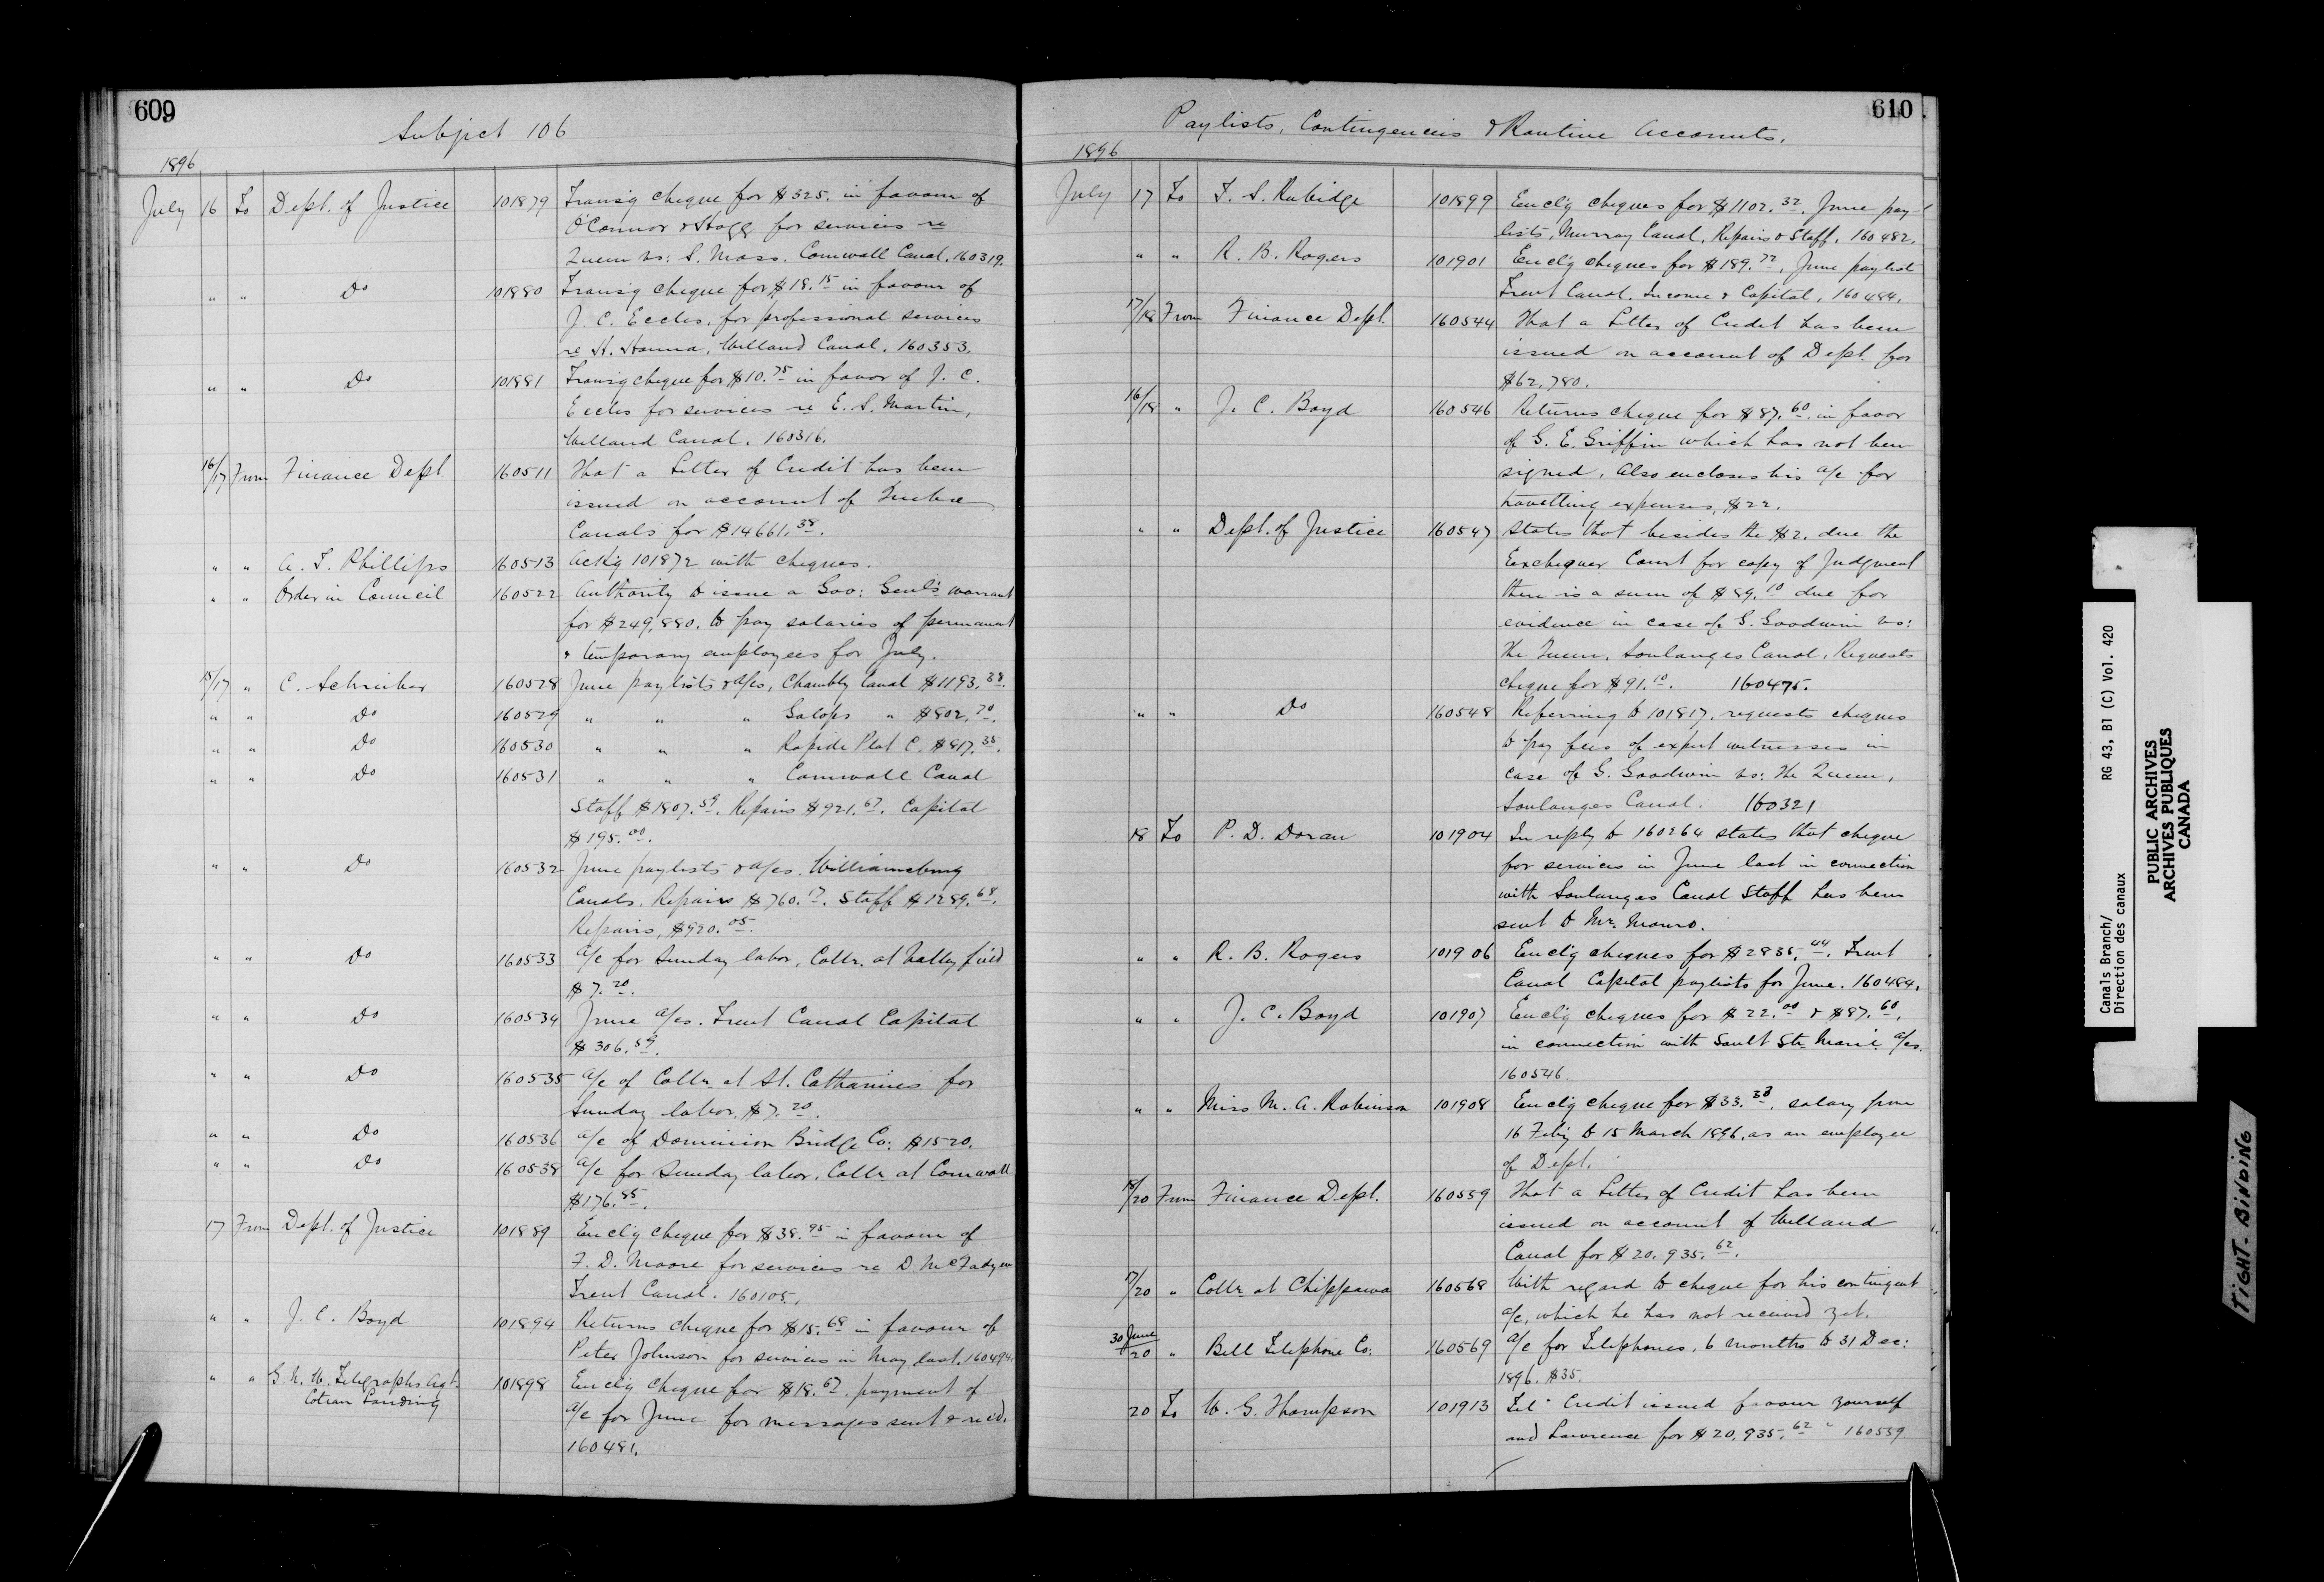 609
Subject 106
1896
July 16 To Dept. of Justice 101879 Transg cheque for $325. in favour of
O'Connor & Hogg for services re
Queen vs: S. Moss. Cornwall Canal. 160319.
" " Do 101880 Transg cheque for $18.15 in favour of
J. C. Eccles, for professional services
re H. Hanna, Welland Canal. 160353.
" " Do 101881 Transg cheque for $10.75 in favor of J. C.
Eccles for services re E. S. Martin,
Welland Canal. 160316.
16/17 From Finance Dept 160511 That a Letter of Credit has been
issued on account of Quebec
Canals for $14661.38.
" " A. T. Phillips 160513 Ackg 101872 with cheques.
" " Order in Council 160522 Authority to issue a Gov: Genl's warrant
for $249,880. to pay salaries of permanent
& temporary employees for July.
15/17 " C. Schreiber 160528 June paylists & a/cs, Chambly Canal $1193.38.
" " Do 160529 " " " Galops " $802.70.
" " Do 160530 " " " Rapide Plat C. $817.35.
" " Do 160531 " " " Cornwall Canal
Staff $1807.59. Repairs $921.67. Capital
$195.00.
" " Do 160532 June paylists & a/cs. Williamsburg
Canals, Repairs $760.17. Staff $1289.68.
Repairs, $920.05.
" " Do 160533 a/c for Sunday labor, Collr. at Valleyfield
$7.20.
" " Do 160534 June a/cs. Trent Canal Capital
$306.59.
" " Do 160535 a/c of Collr at St. Catharines for
Sunday labor, $7.20.
" " Do 160536 a/c of Dominion Bridge Co: $1520.
" " Do 160538 a/c for Sunday labor, Collr at Cornwall
$176.85.
17 From Dept. of Justice 101889 Enclg cheque for $38.95 in favour of
F. D. Moore for services re D. McFadyen
Trent Canal. 160105.
" " J. C. Boyd 101894 Returns cheque for $15.68 in favour of
Peter Johnson for services in May last. 160494.
" " G. N. W. Telegraphs Agt. 101898 Enclg cheque for $18.67, payment of
Coteau Landing
a/c for June for messages sent & recd.
160481.
610
Paylists, Contingencies & Routine Accounts.
1896
July 17 To T. S. Rubidge 101899 Enclg cheques for $1102.32, June pay-
lists, Murray Canal, Repairs & Staff. 160482.
" " R. B. Rogers 101901 Enclg cheques for $189.72, June paylist
Trent Canal. Income & Capital, 160484.
17/18 From Finance Dept. 160544 That a Letter of Credit has been
issued on account of Dept. for
$62,780.
16/18 " J. C. Boyd 160546 Returns cheque for $87.60, in favor
of G. E. Griffin which has not been
signed. Also encloses his a/c for
travelling expenses, $22.
" " Dept. of Justice 160547 States that besides the $2. due the
Exchequer Court for copy of Judgment
there is a sum of $89.10 due for
evidence in case of G. Goodwin vs:
The Queen, Soulanges Canal, Requests
cheque for $91.10. 160475.
" " Do 160548 Referring to 101817, requests cheques
to pay fees of expert witnesses in
case of G. Goodwin vs: The Queen,
Soulanges Canal. 160321
18 To P. D. Doran 101904 In reply to 160264 states that cheque
for services in June last in connection
with Soulanges Canal Staff has been
sent to Mr. Monro.
" " R. B. Rogers 101906 Enclg cheques for $2835.44. Trent
Canal Capital paylists for June. 160484.
" " J. C. Boyd 101907 Enclg cheques for $22.00 & $87.60.
in connection with Sault Ste. Marie a/cs.
160546.
" " Miss M. A. Robinson 101908 Enclg cheque for $33.33, salary from
16 Feby to 15 March 1896, as an employee
of Dept.
18/20 From Finance Dept. 160559 That a Letter of Credit has been
issued on account of Welland
Canal for $20,935.62.
17/20 " Collr at Chippawa 160568 With regard to cheque for his contingent
a/c, which he has not received yet.
30 June/20 " Bell Telephone Co: 160569 a/c for Telephones, 6 months to 31 Dec:
1896. $35.
20 To W. G. Thompson 101913 Tel " Credit issued favour yourself
and Lawrence for $20,935.62 " 160559.
Canals Branch/
Direction des canaux
RG 43, B1 (C) Vol. 420
PUBLIC ARCHIVES
ARCHIVES PUBLIQUES
CANADA
TIGHT. BINDING